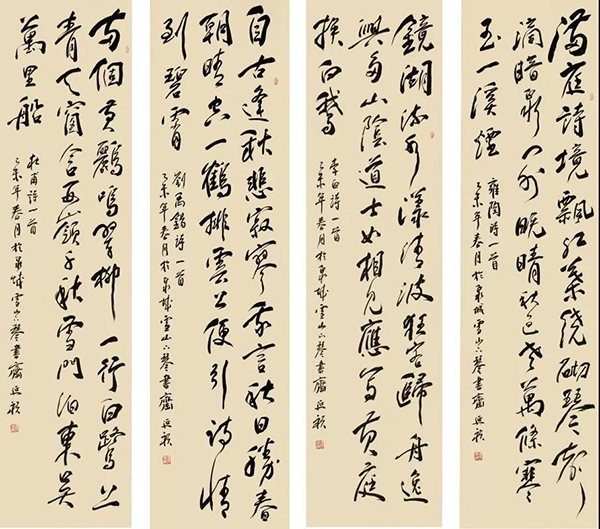 滿庭詩境飄红葉绕砌琴聲
滴暗泉门外晚晴秋色老萬條寒
玉一溪煙
雍陶詩一首
乙未年春月於泉城雪山琴書齋
鏡湖流水漾清波狂客歸舟逸
興多山陰道士如相見應写黄庭
换白鵝
李白詩一首
乙未年春月於泉城雪山琴書齋
自古逢秋悲寂寥我言秋日勝春
朝晴空一鶴排雲上便引詩情
到碧霄
劉禹錫詩一首
乙未年春月於泉城雪山琴書齋
两個黄鸝鳴翠柳一行白鷺上
青天窗含西嶺千秋雪門泊東吴
萬里船
杜甫詩一首
乙未年春月於泉城雪山琴書齋